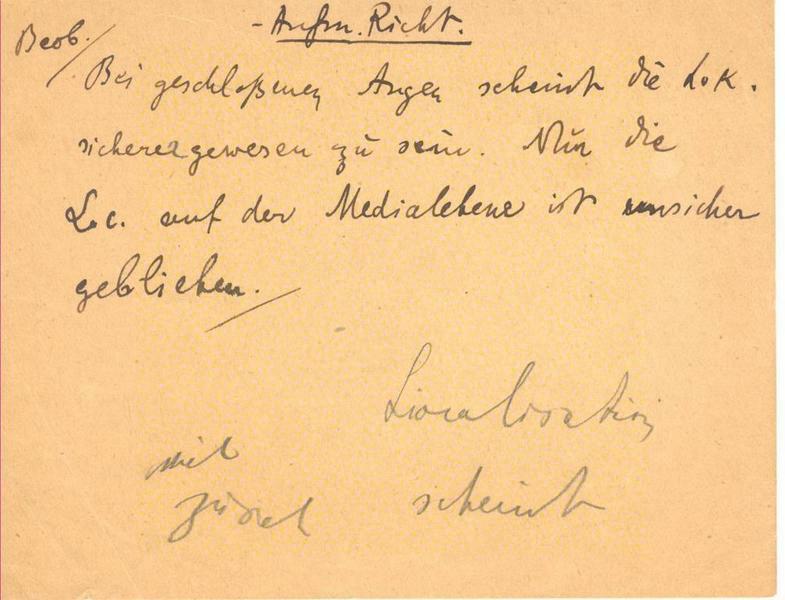 Beob.
- Aufm. Richt.
Bei geschloßenen Augen scheint die Lok.
sicherer gewesen zu sein. Nur die
Loc. auf der Medialebene ist unsicher
geblieben.
Localisation
scheint